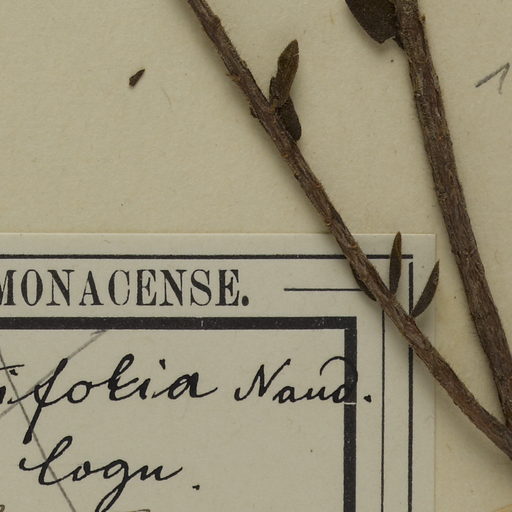 MONACENSE.
ifolia Naud.
Cogn.